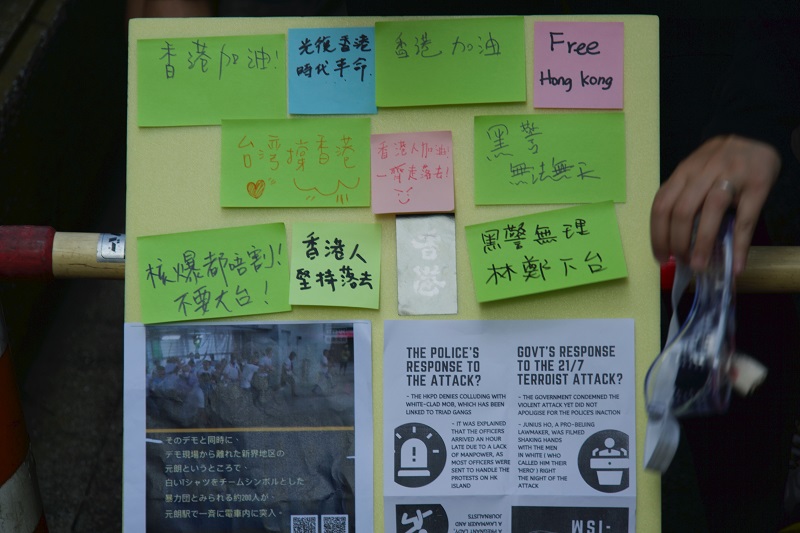 香港加油!
光復香港
時代革命
香港加油
Free
Hong Kong
台灣撐香港
香港人加油!
一齊走落去!
黑警
無法無天
核爆都唔割!
不要大台!
香港人
堅持落去
香港
黑警無理
林鄭下台
そのデモと同時に、
デモ現場から離れた新界地区の
元朗というところで、
白いTシャツをチームシンボルとした
暴力団とみられる約200人が、
元朗駅で一斉に電車内に突入、
THE POLICE'S
RESPONSE TO
THE ATTACK?
- THE HKPD DENIES COLLUDING WITH
WHITE-CLAD MOB, WHICH HAS BEEN
LINKED TO TRIAD GANGS
- IT WAS EXPLAINED
THAT THE OFFICERS
ARRIVED AN HOUR
LATE DUE TO A LACK
OF MANPOWER, AS
MOST OFFICERS WERE
SENT TO HANDLE THE
PROTESTS ON HK
ISLAND
GOVT'S RESPONSE
TO THE 21/7
TERROIST ATTACK?
- THE GOVERNMENT CONDEMNED THE
VIOLENT ATTACK YET DID NOT
APOLIGISE FOR THE POLICE'S INACTION
- JUNIUS HO, A PRO-BEIJING
LAWMAKER, WAS FILMED
SHAKING HANDS
WITH THE MEN
IN WHITE ( WHO
CALLED HIM THEIR
'HERO') RIGHT
THE NIGHT OF THE
ATTACK
A PREGNANT LADY,
A LAWMAKER AND
JOURNALISTS
MIS-